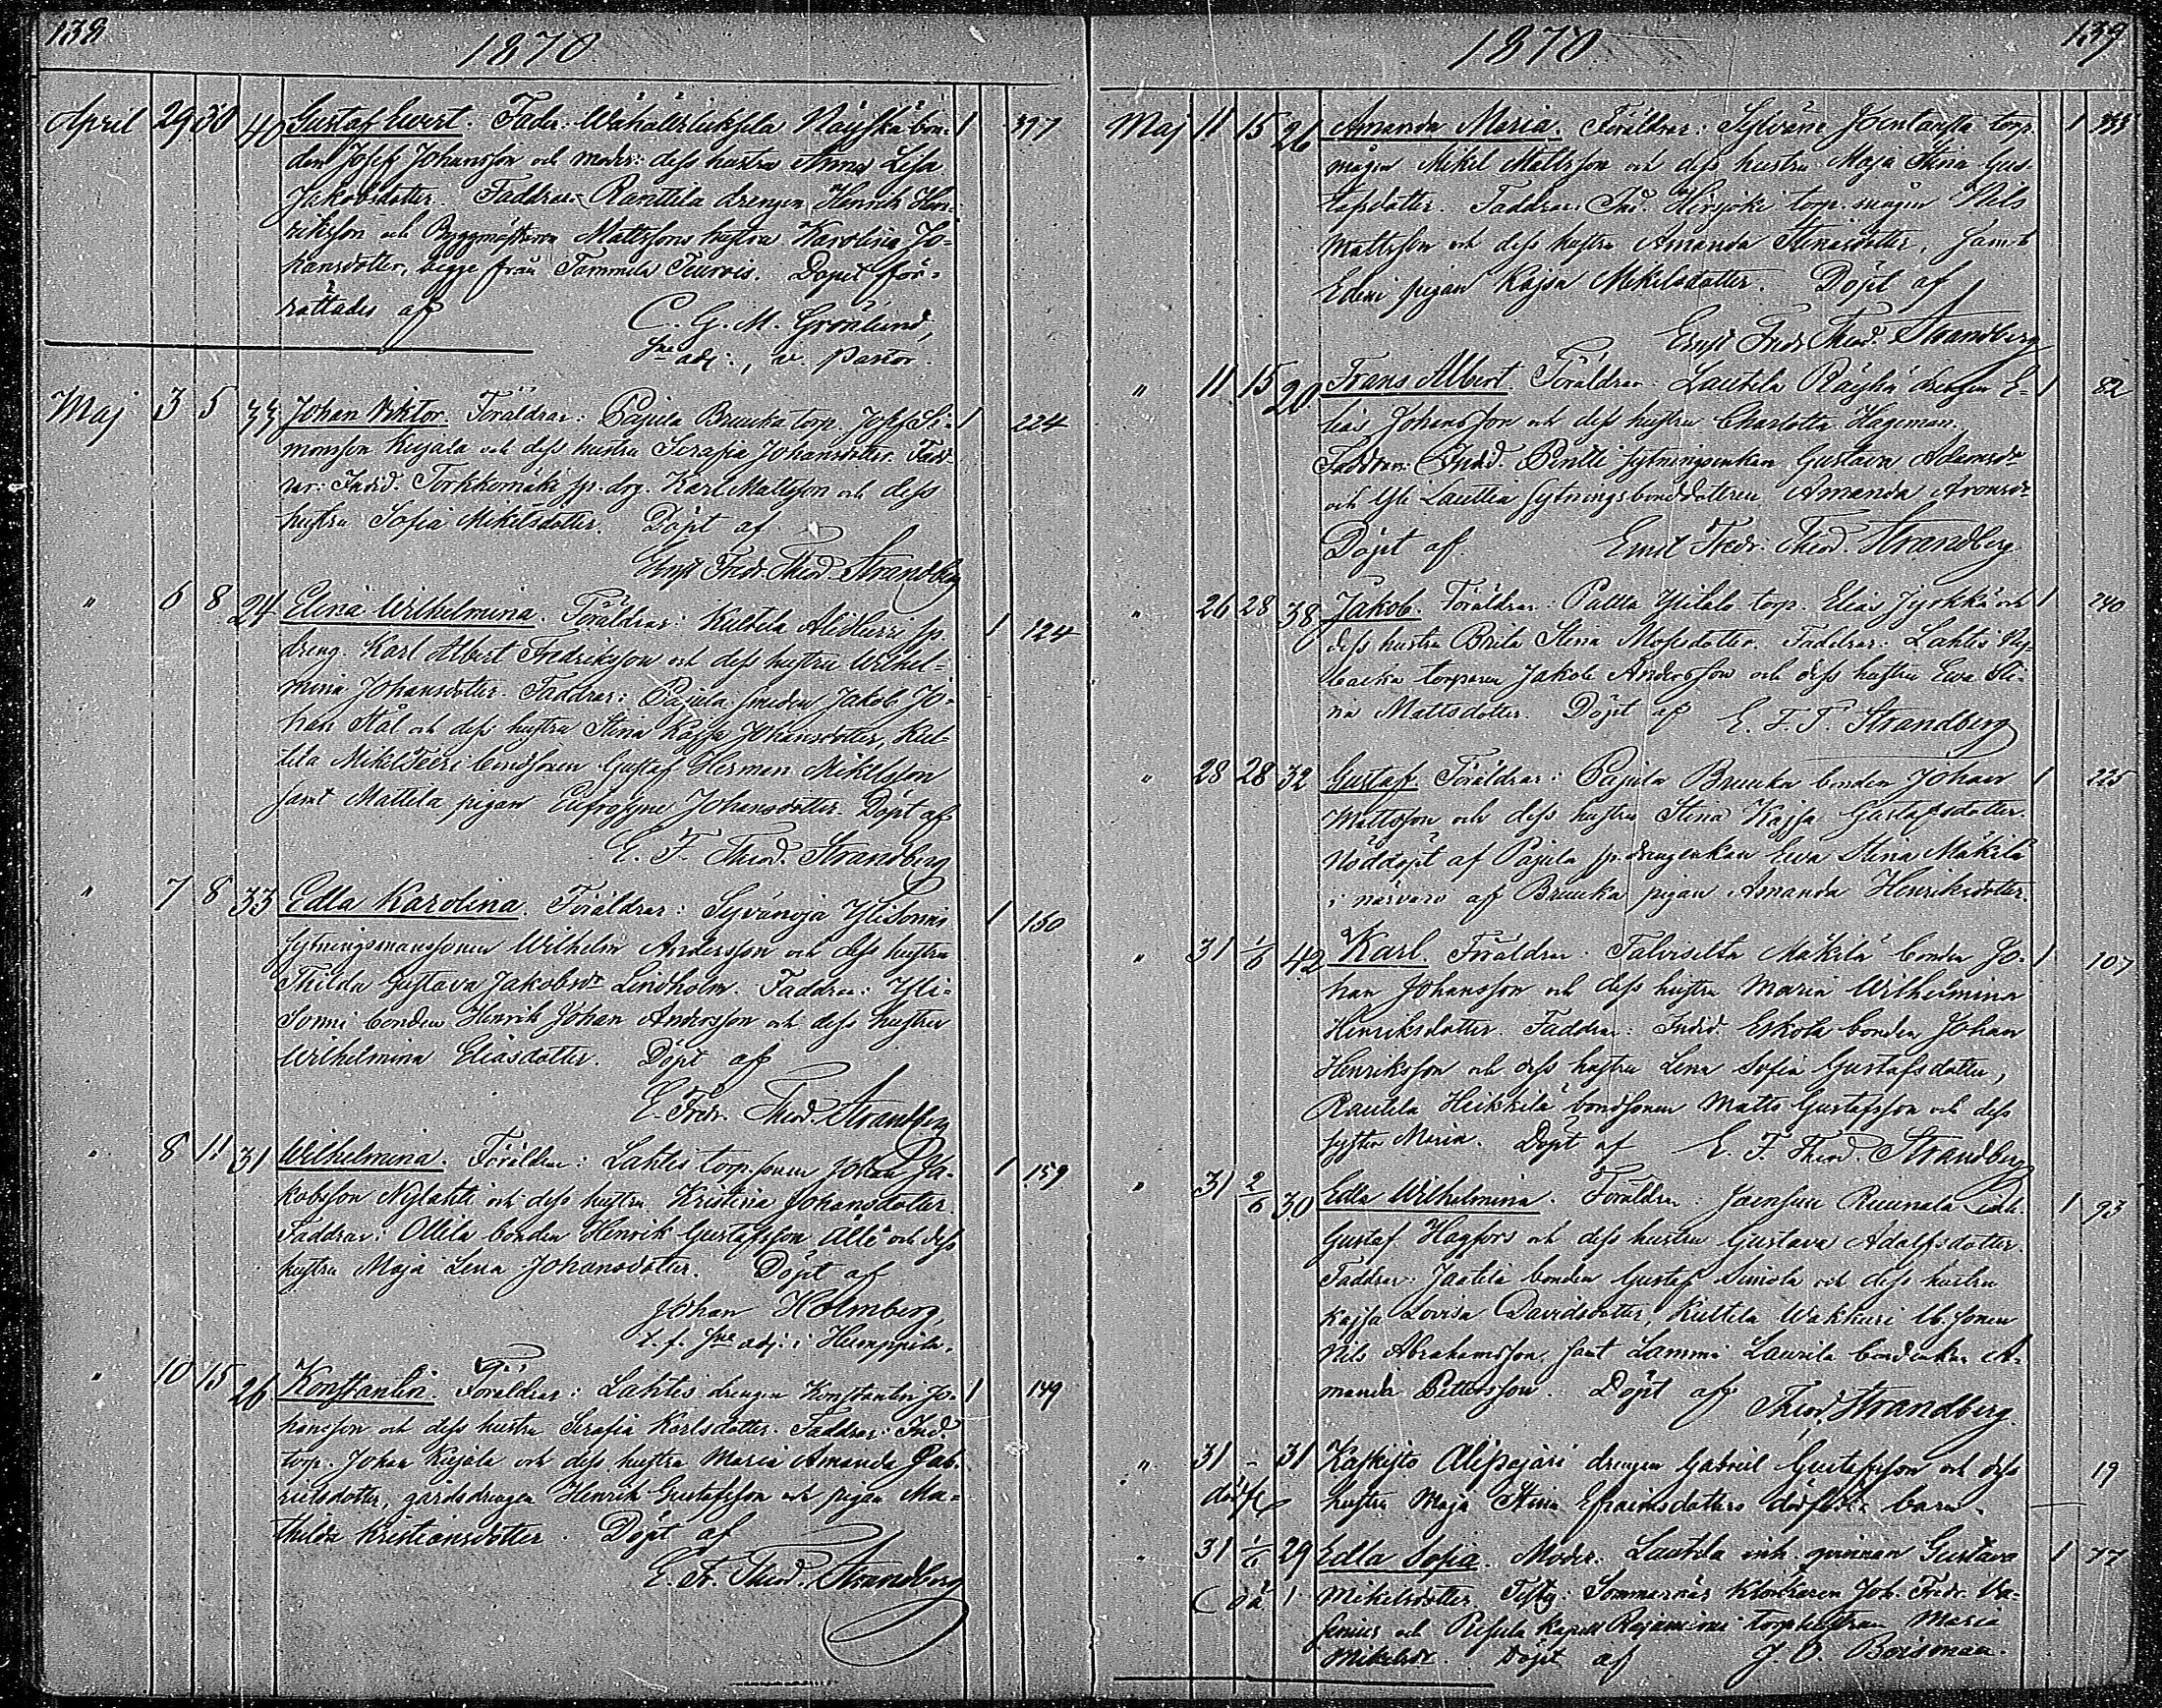 138
1870
April 29 30 40 Gustaf Evert. Fader: bon- 1 397
den Josef Johansson och moder: dess hustru Anna Lisa
Jakobsdotter. Faddrar: Ranttila drengen Henrik Hen-
riksson och Byggmästaren Mattssons hustru Karolina Jo-
hansdotter, begge från Tammela Teuro. Dopet för-
rättades af C. G. M. Grönlund,
adj., v. pastor.
Maj 3 5 33 Johan Viktor. Föräldrar: Pajula Bruuka torp. Josef Si- 1 224
monsson Kujala och dess hustru Serafia Johansdotter. Fadd-
rar: Indid. Torkkomäki sp. drg. Karl Mattsson och dess
hustru Sofia Mikelsdotter. Döpt af
Ernst Fredr. Theod. Strandberg
" 6 8 24 Elina Wilhelmina. Föräldrar: Kultila sp. 1 124
dreng. Karl Albert Fredriksson och dess hustru Wilhel-
mina Johansdotter. Faddrar: Pajula smeden Jakob Jo-
han Stål och dess hustru Stina Kajsa Johansdotter, Kul-
tila Mikel Teeri bondsonen Gustaf Herman Mikelsson
samt Mattila pigan Eufrosyne Johansdotter. Döpt af
E. F. Theod. Strandberg
" 7 8 33 Edla Karolina. Föräldrar: Syvänoja YliSonni 1 150
sytningsmanssonen Wilhelm Andersson och dess hustru
Thilda Gustava Jakobsdr Lindholm. Faddrar: Yli-
Sonni bonden Henrik Johan Andersson och dess hustru
Wilhelmina Eliasdotter. Döpt af
E. Fredr. Theod. Strandberg
" 8 11 31 Wilhelmina. Föräldrar: Lahtis torp. sonen Johan Ja- 1 159
kobsson Nylahti och dess hustru Kristina Johansdotter.
Faddrar: Ollila bonden Henrik Gustafsson Älle och dess
hustru Maja Lena Johansdotter. Döpt af
Johan Holmberg,
t. f. adj. i Humppila.
" 10 15 26 Konstantin. Föräldrar: Lahtis drengen Konstantin Jo- 1 149
hansson och dess hustru Serafia Karlsdotter. Faddrar: Ind.
torp. Johan Kujala och dess hustru Maria Amanda Gab-
rielsdotter, gårdsdrengen Henrik Gustafsson och pigan Ma-
thilda Kristiansdotter. Döpt af
E. Fr. Theod. Strandberg
1870
139
Maj 11 15 26 Amanda Maria. Föräldrar: torp. 1
mågen Mikel Mattsson och dess hustru Maja Stina Gus-
tafsdotter. Faddrar: Ind. torp. mågen Nils
Mattsson och dess hustru Amanda samt
pigan Kajsa Mikelsdotter. Döpt af
Ernst Fredr. Theod. Strandberg
" 11 15 20 Frans Albert. Föräldrar: Lautela Räyhä drengen E- 1 82
lias Johansson och dess hustru Charlotta Hageman.
Faddrar: Indid. Pentti sytningsenkan Gustava Adamsdr
och Yli Lauttia sytningsbonddottren Amanda Aronsdr
Döpt af Ernst Fredr. Theod. Strandberg
" 26 28 38 Jakob. Föräldrar: torp. Elias Jyokkä och 1 240
dess hustru Brita Stina Mosesdotter. Faddrar: Lahtis Ny-
backa torparen Jakob Andersson och dess hustru Eva Sti-
na Mattsdotter. Döpt af E. F. T. Strandberg
" 28 28 32 Gustaf. Föräldrar: Pajula Bruuka bonden Johan 1 225
Mattsson och dess hustru Stina Kajsa Gustafsdotter.
Nöddöpt af Pajula sp. drengenkan Eva Stina Mäkilä
i närvaro af Bruuka pigan Amanda Henriksdotter.
" 31 1/6 42 Karl. Föräldrar: Talvisilta Mäkilä bonden Jo- 1 107
han Johansson och dess hustru Maria Wilhelmina
Henriksdotter. Faddrar: Indid. Eskola bonden Johan
Henriksson och dess hustru Lena Sofia Gustafsdotter,
Rautela Heikkilä bondsonen Matts Gustafsson och dess
syster Maria. Döpt af E. F. Theod. Strandberg
" 31 2/6 30 Edla Wilhelmina. Föräldrar: Jaensuu Ruunala inh. 1 93
Gustaf Hagfors och dess hustru Gustava Adolfsdotter.
Faddrar: Jaatila bonden Gustaf Simola och dess hustru
Kajsa Lovisa Davidsdotter, Kultela Wakkuri b. sonen
Nils Abrahamsson samt Lammi Laurila bondenkan A-
manda Pettersson. Döpt af Theod. Strandberg.
" 31 - 31 Kaskisto Alipajari drengen Gabriel Gustafsson och dess 19
dödf. hustru Maja Stina Efraimsdotters dödfödt barn. —
" 31 1/6 29 Edla Sofia. Moder: Lautela inh. qvinnan Gustava 1 77
(oä 1 Mikelsdotter. Testes: Sommarnäs Klockaren Joh. Fredr. Va-
senius och kapell Rajamäki torp.hustrun Maria
Mikelsdr. Döpt af J. O. Borsman.